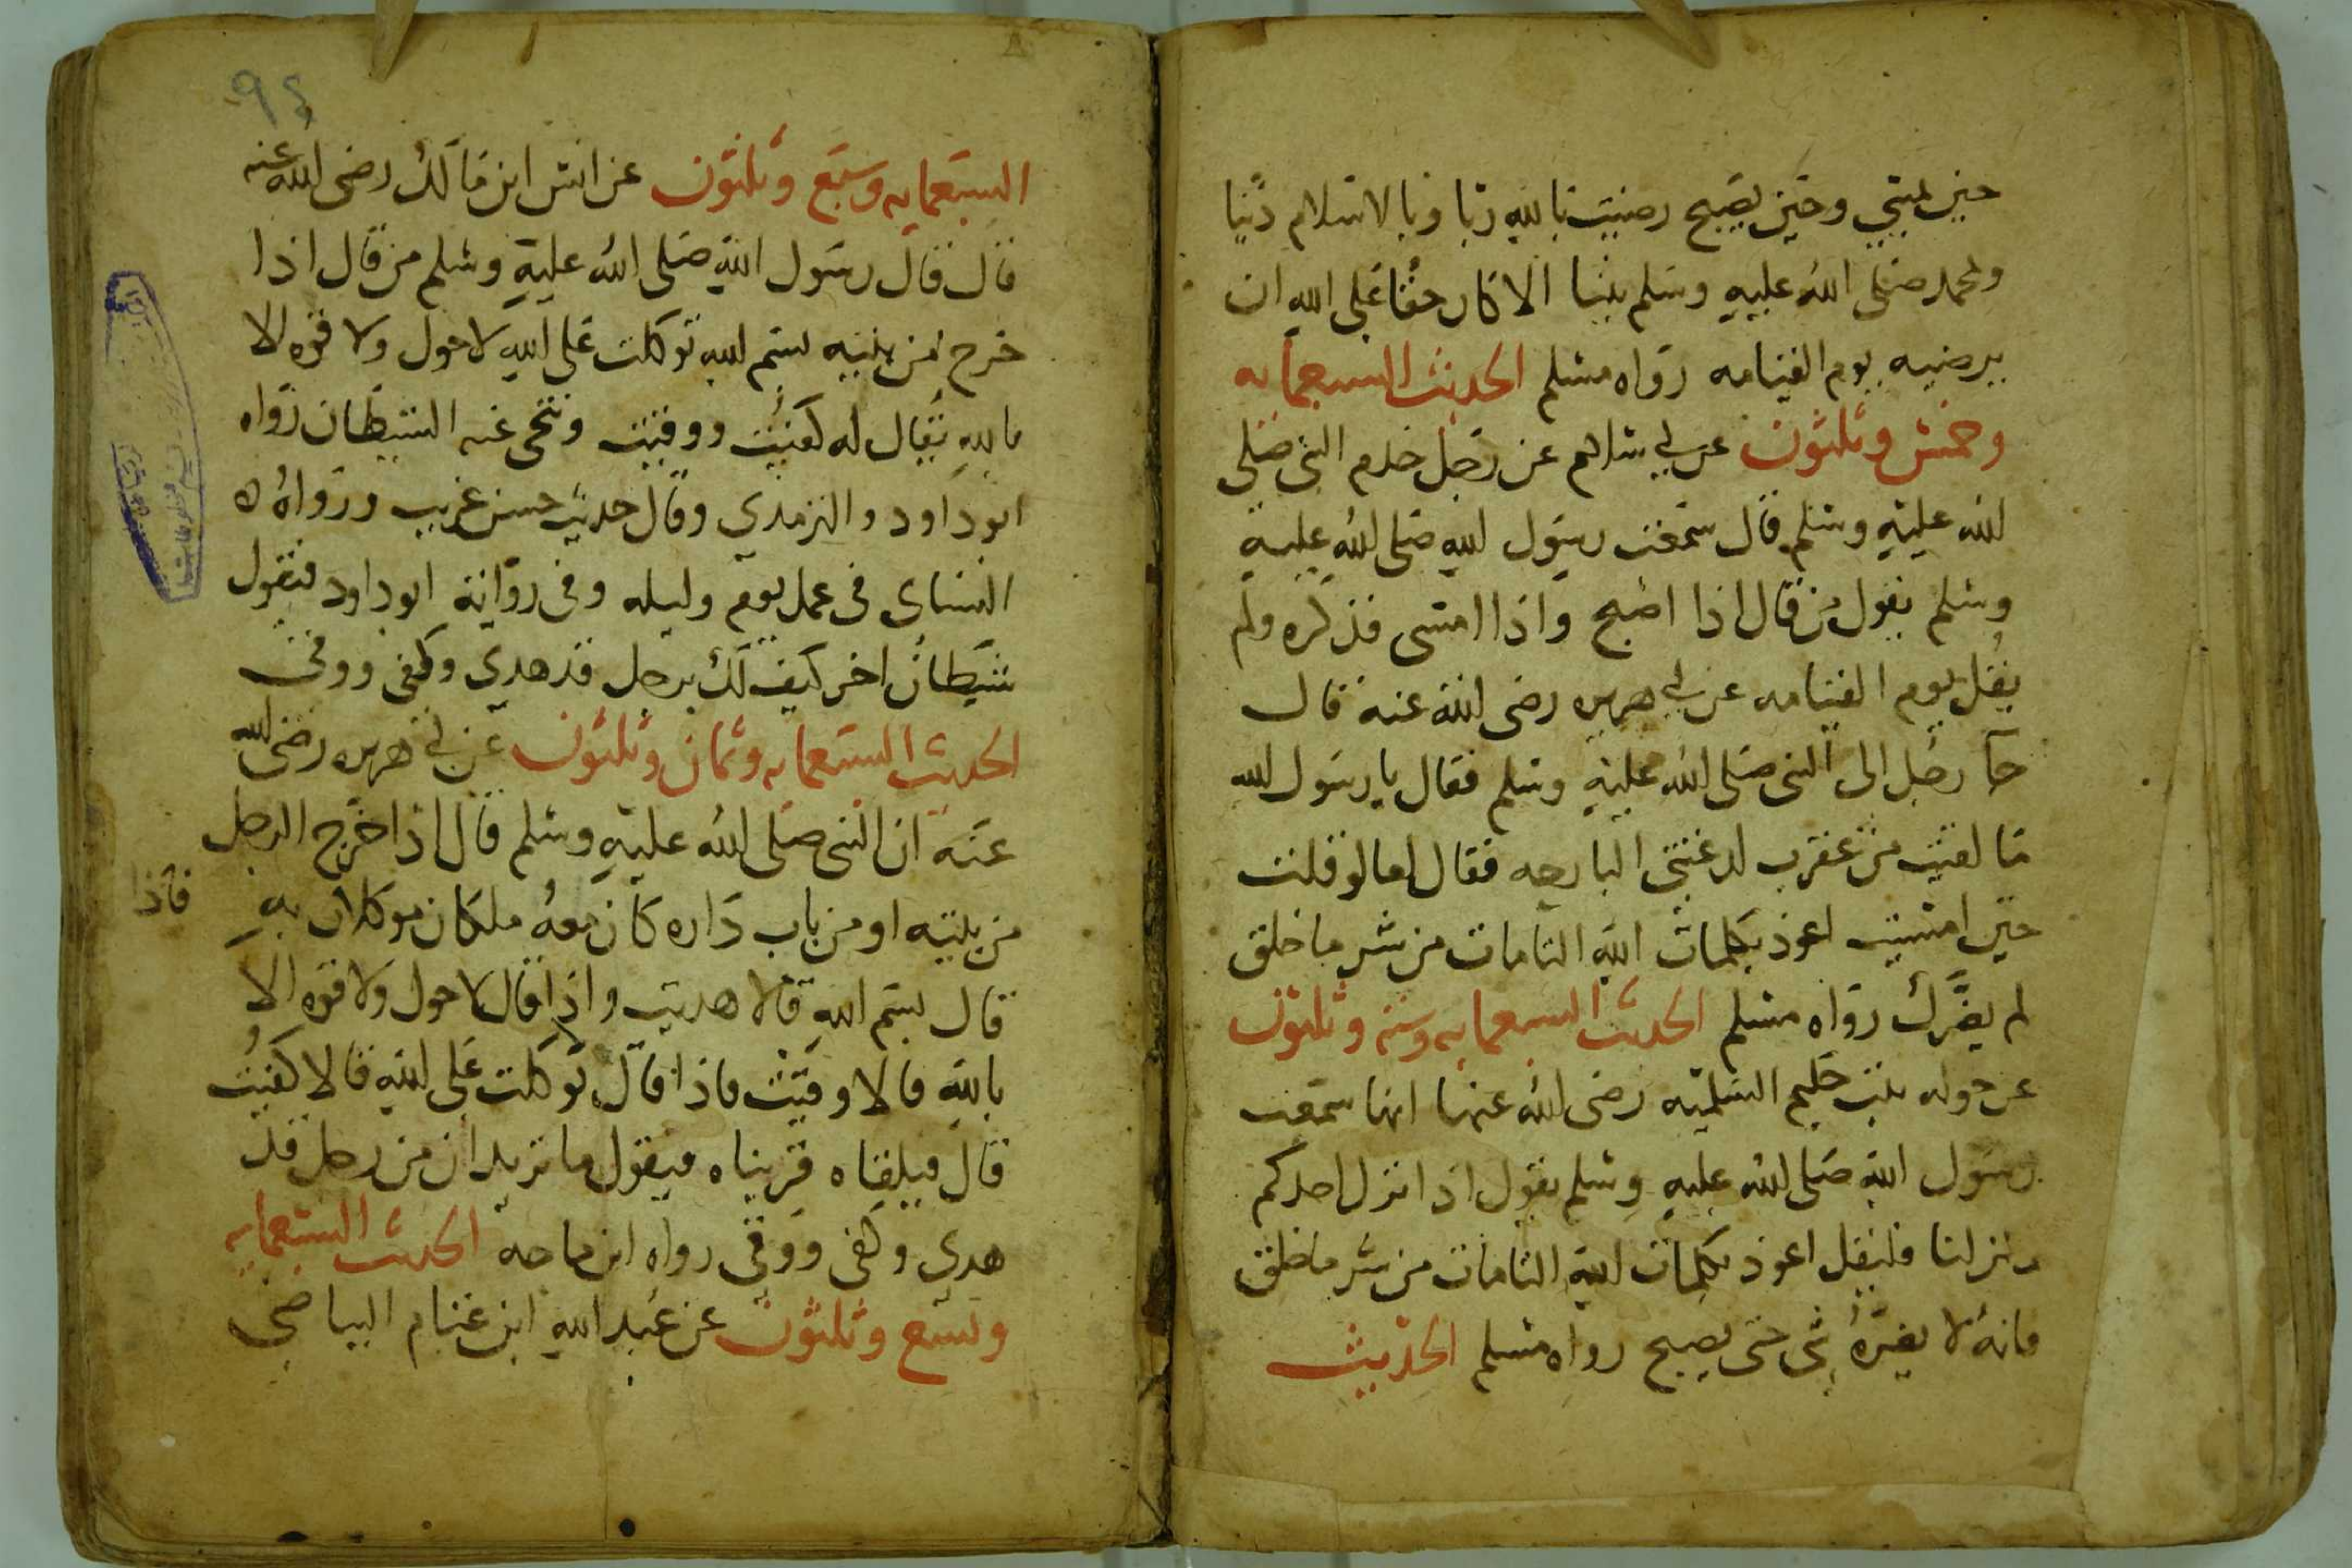 حين يمسي وحين يصبح رضيت بالله ربا وبالاسلام دينا
ولمحمد صلى الله عليه وسلم نبيا الا كان حقا على الله ان
يرضيه يوم القيامه رواه مسلم الحديث السبعمايه
وخمس وثلثون عن ابي سلام عن رجل خدم النبي صلى
الله عليه وسلم قال سمعت رسول الله صلى الله عليه
وسلم يقول من قال اذا اصبح واذا امسى فذكره ولم
يقل يوم القيامه عن ابي هريره رضى الله عنه قال
جآ رجل الى النبي صلى الله عليه وسلم فقال يا رسول الله
ما لقيت من عقرب لدغتني البارحه فقال اما لو قلت
حين امسيت اعوذ بكلمات الله التامات من شر ما خلق
لم يضرك رواه مسلم الحديث السبعمايه وسته وثلثون
عن خوله بنت حكيم السلميه رضى الله عنها انها سمعت
رسول الله صلى الله عليه وسلم يقول اذا نزل احدكم
منزلنا فليقل اعوذ بكلمات الله التامات من شر ما خلق
فانه لا يضره شي حتى يصبح رواه مسلم الحديث
٩٤
السبعمايه وسبع وثلثون عن انس ابن مالك رضى الله عنه
قال قال رسول الله صلى الله عليه وسلم من قال اذا
خرج من بيته بسم الله توكلت على الله لا حول ولا قوه الا
بالله يقال له كفيت ووقيت وتنحى عنه الشيطان رواه
ابو داود والترمدي وقال حديث حسن غريب ورواه
النساى فى عمل يوم وليله وفى رواية ابو داود فيقول
شيطان اخر كيف لك برجل قد هدي وكفى ووقى
الحديث السبعمايه وثمان وثلثون عن ابي هريره رضى الله
عنه ان النبي صلى الله عليه وسلم قال اذا خرج الرجل
من بيته او من باب داره كان معه ملكان موكلان به فاذا
قال بسم الله قالا هديت واذا قال لا حول ولا قوه الا
بالله قالا وقيت فاذا قال توكلت على الله قالا كفيت
قال فيلقاه قريناه فيقول ما تريدان من رجل قد
هدي وكفى ووقى رواه ابن ماجه الحديث السبعمايه
وتسع وثلثون عن عبد الله ابن غنام البياضي